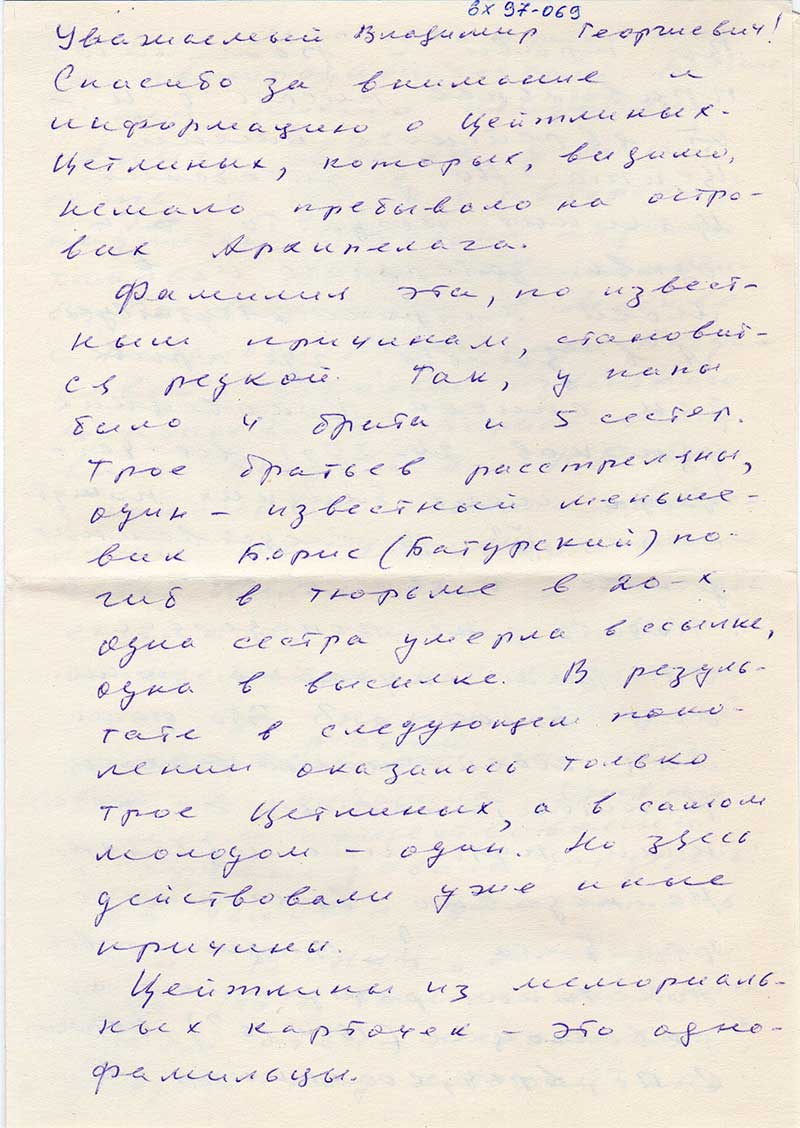 вх 97-069
Уважаемый Владимир Георгиевич!
Спасибо за внимание и
информацию о Цейтлиных-
Цетлиных, которых, видимо,
немало пребывало на остро-
вах Архипелага.
Фамилия эта, по извест-
ным причинам, становит-
ся редкой. Так, у папы
было 4 брата и 5 сестер.
Трое братьев расстреляны,
один – известный меньше-
вик Борис (Батурский) по-
гиб в тюрьме в 20-х.
одна сестра умерла в ссылке,
одна в высылке. В резуль-
тате в следующем поко-
лении оказалось только
трое Цетлиных, а в самом
молодом – один. Но здесь
действовали уже иные
причины.
Цейтлины из мемориаль-
ных карточек – это одно-
фамильцы.